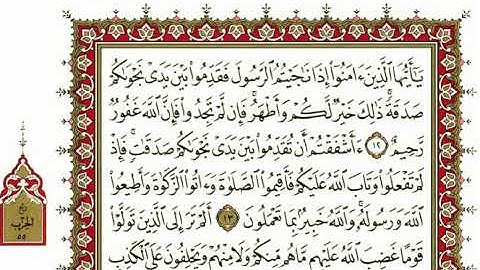 يَٰٓأَيُّهَا ٱلَّذِينَ ءَامَنُوٓا۟ إِذَا نَٰجَيْتُمُ ٱلرَّسُولَ فَقَدِّمُوا۟ بَيْنَ يَدَىْ نَجْوَىٰكُمْ
صَدَقَةً ۚ ذَٰلِكَ خَيْرٌ لَّكُمْ وَأَطْهَرُ ۚ فَإِن لَّمْ تَجِدُوا۟ فَإِنَّ ٱللَّهَ غَفُورٌ
رَّحِيمٌ ١٢ ءَأَشْفَقْتُمْ أَن تُقَدِّمُوا۟ بَيْنَ يَدَىْ نَجْوَىٰكُمْ صَدَقَٰتٍ ۚ فَإِذْ
لَمْ تَفْعَلُوا۟ وَتَابَ ٱللَّهُ عَلَيْكُمْ فَأَقِيمُوا۟ ٱلصَّلَوٰةَ وَءَاتُوا۟ ٱلزَّكَوٰةَ وَأَطِيعُوا۟
ٱللَّهَ وَرَسُولَهُۥ ۚ وَٱللَّهُ خَبِيرٌۢ بِمَا تَعْمَلُونَ ١٣ أَلَمْ تَرَ إِلَى ٱلَّذِينَ تَوَلَّوْا۟
قَوْمًا غَضِبَ ٱللَّهُ عَلَيْهِم مَّا هُم مِّنكُمْ وَلَا مِنْهُمْ وَيَحْلِفُونَ عَلَى ٱلْكَذِبِ
ربع
الحزب
٥٥